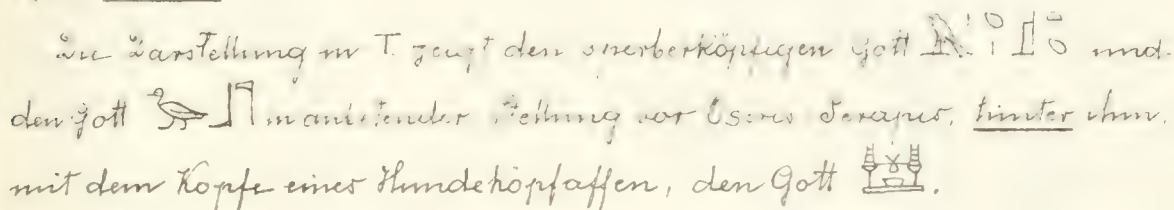 Die Darstellung in T. zeigt den sperberköpfigen Gott und
den Gott in anbetender Stellung vor Osiris Serapis, hinter ihm,
mit dem Kopfe eines Hundskopfaffen, den Gott .